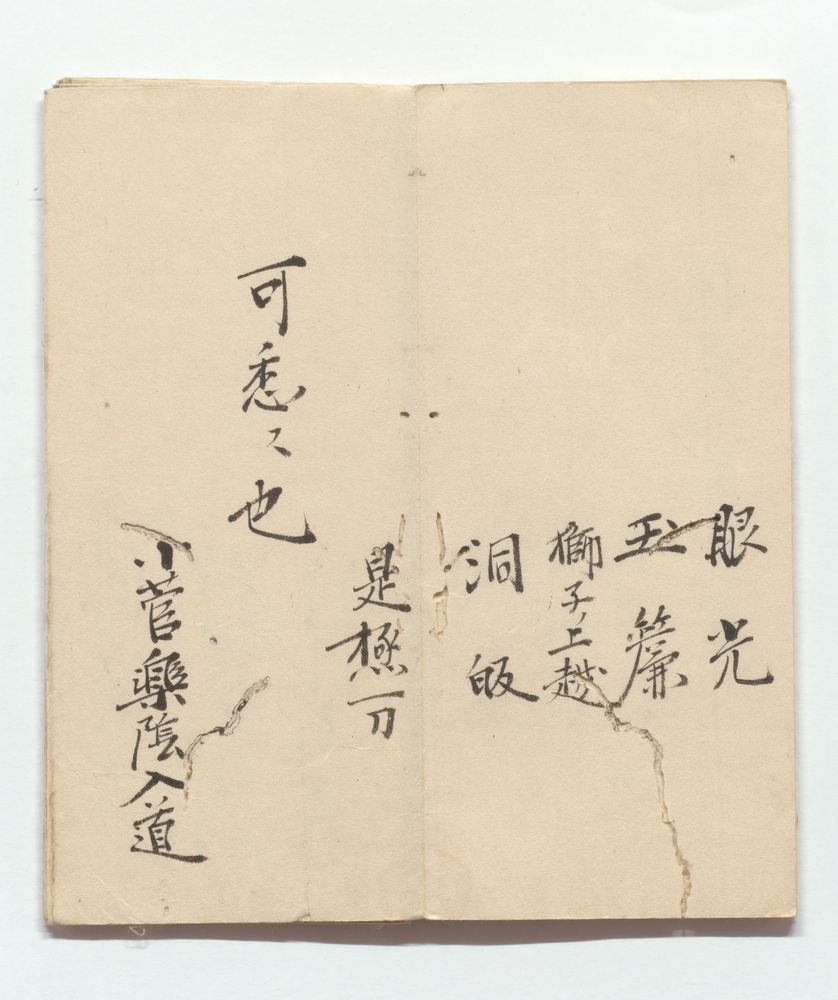 眼光
玉簾
獅子ノ上越
洞皈
是極一刀
可悉々也
小菅藥陰入道